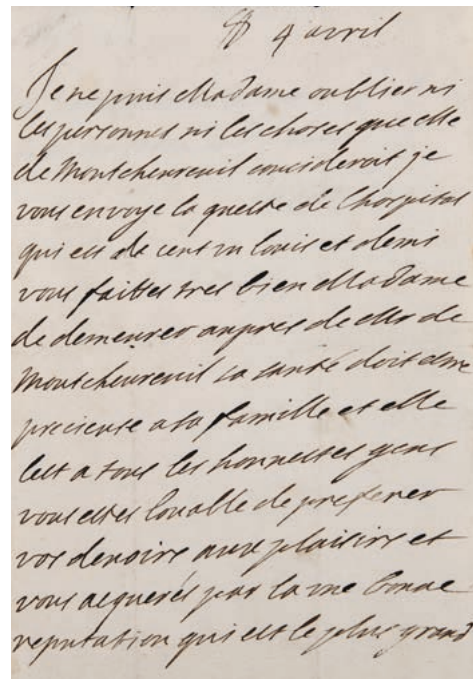 4 avril
Je ne puis Madame oublier ni
les personnes ni les choses que Me
de Montchevreuil consideroit je
vous envoye la queste de Lhospital
qui est de cent un louis et demi
vous faittes tres bien Madame
de demeurer aupres de Mr de
Montchevreuil sa santé doit estre
precieuse a sa famille et elle
lest a tous les honnestes gens
vous estes louable de preferer
vos devoirs aux plaisirs et
vous acquerés par la une bonne
reputation qui est le plus grand